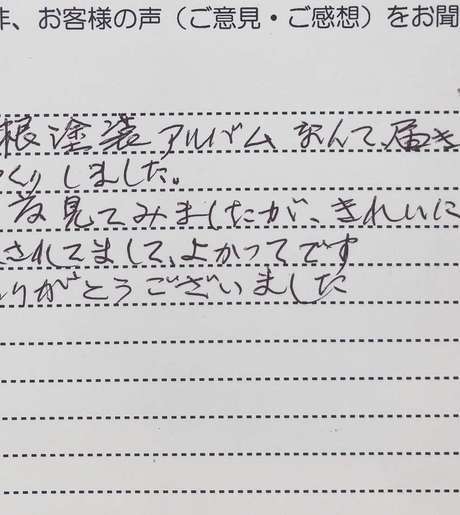 非、お客様の声（ご意見・ご感想）をお聞
根塗装アルバムなんて、届き
くりしました。
見てみましたが、きれいに
されてまして、よかってです
りがとうございました